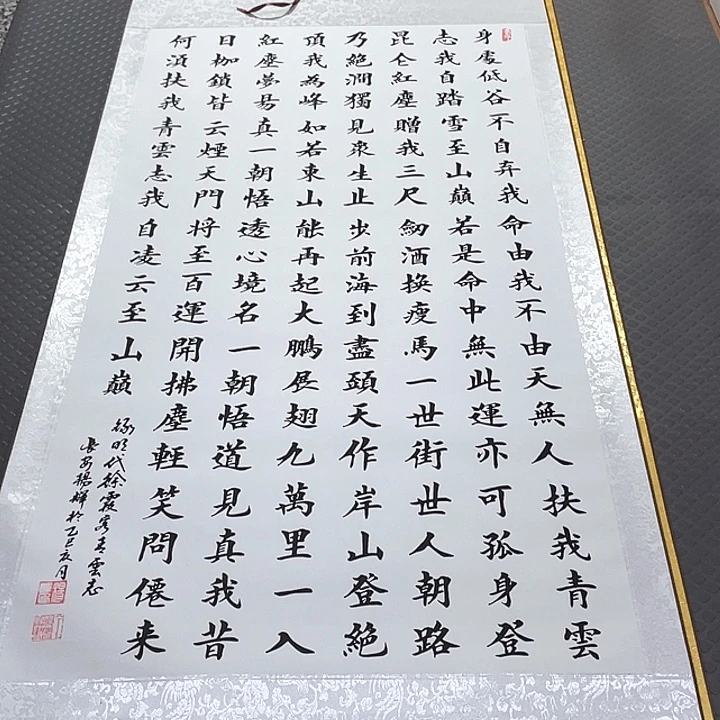 身處低谷不自弃我命由我不由天無人扶我青雲
志我自踏雪至山巔若是命中無此運亦可孤身登
昆仑紅塵贈我三尺釰酒换瘦馬一世街世人朝路
乃絕澗獨見衆生止步前海到盡頭天作岸山登絕
頂我為峰如若東山能再起大鵬展翅九萬里一入
紅塵夢易真一朝悟透心境名一朝悟道見真我昔
日枷鎖皆云煙天門将至百運開拂塵輕笑問僊来
何湏扶我青雲志我自凌云至山巔
録明代徐霞客青雲志
長安楊輝於乙巳夏月